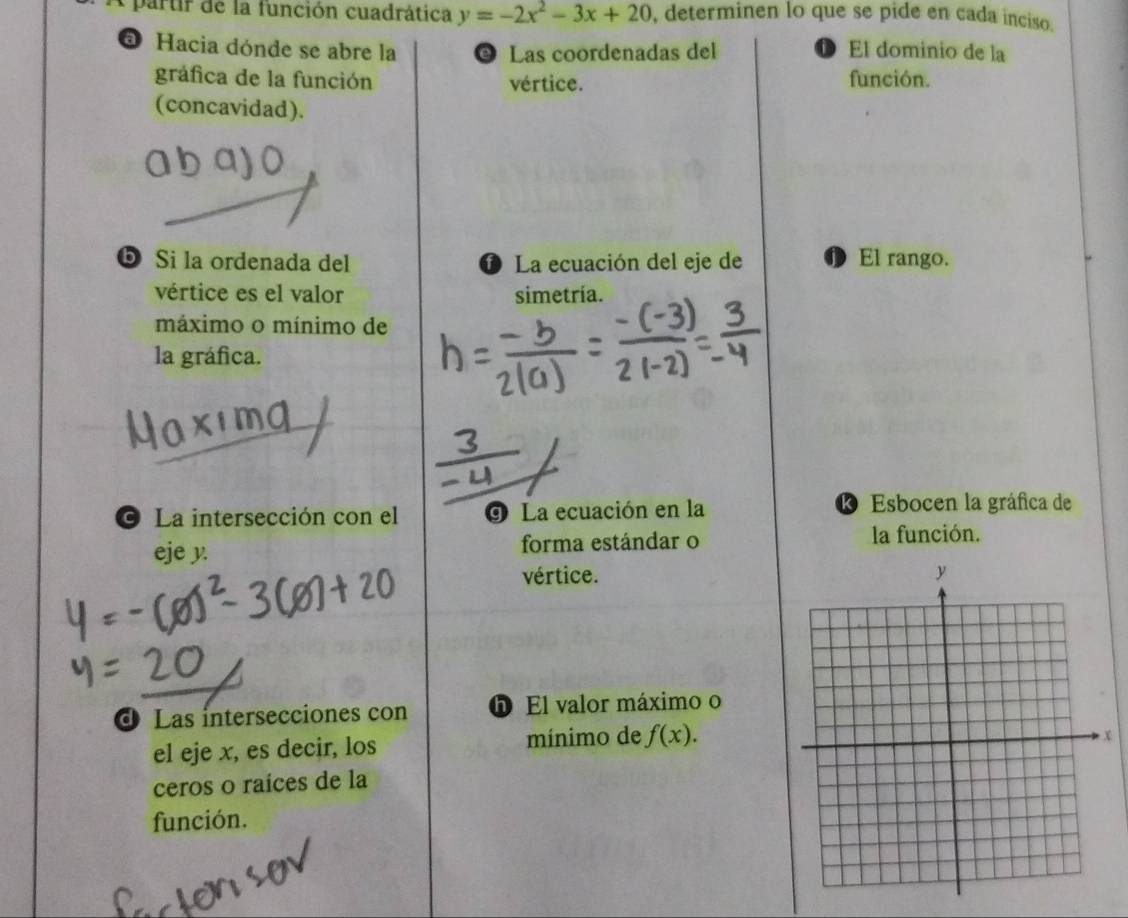 A partir de la función cuadrática y = −2x² − 3x + 20, determinen lo que se pide en cada inciso.
a Hacia dónde se abre la
gráfica de la función
(concavidad).
abajo
b Si la ordenada del
vértice es el valor
máximo o mínimo de
la gráfica.
Maxima
c La intersección con el
eje y.
y = -(0)² - 3(0) + 20
y = 20
d Las intersecciones con
el eje x, es decir, los
ceros o raíces de la
función.
factorisar
e Las coordenadas del
vértice.
f La ecuación del eje de
simetría.
h = -b/2(a) = -(-3)/2(-2) = 3/-4
3/-4
g La ecuación en la
forma estándar o
vértice.
h El valor máximo o
mínimo de f(x).
i El dominio de la
función.
j El rango.
k Esbocen la gráfica de
la función.
y
x